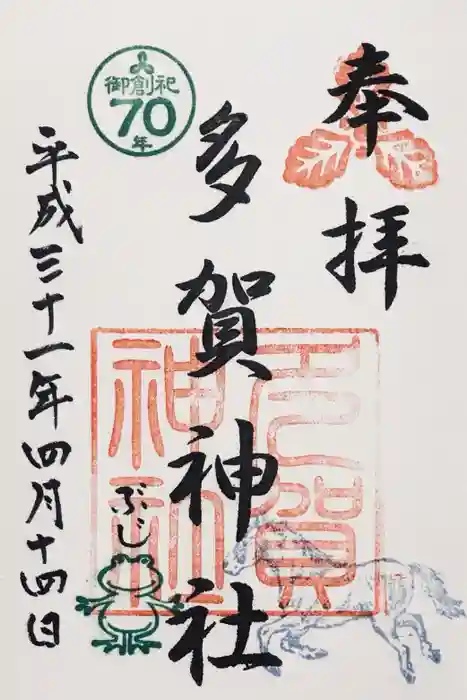 奉拝
多賀神社
平成三十一年四月十四日
御創祀
70
年
ぶじ
多賀
神社